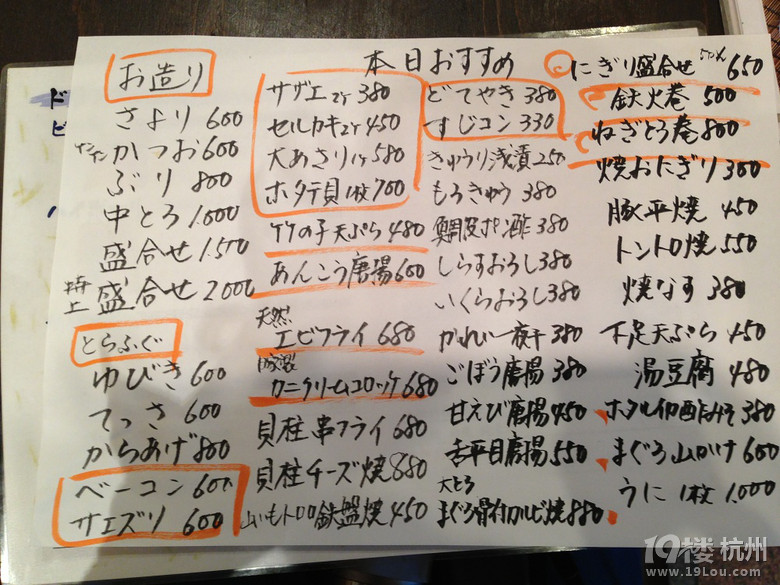 本日おすすめ
お造り
さより 600
かつお 600
ぶり 800
中とろ 1.000
盛合せ 1.500
特上 盛合せ 2000
とらふぐ
ゆびき 600
てっさ 600
からあげ 800
ベーコン 600
サエズリ 600
サザエ2ケ 380
セルカキ2ケ 450
大あさり1ケ 580
ホタテ貝1枚 700
竹の子天ぷら 480
あんこう唐揚 600
天然
エビフライ 680
自家製
カニクリームコロッケ 680
貝柱串フライ 680
貝柱チーズ焼 880
山いもトロロ鉄盤焼 450
どてやき 380
すじコン 330
きゅうり浅漬 250
もろきゅう 380
鯛皮ポン酢 380
しらすおろし 380
いくらおろし 380
かれい一夜干 380
ごぼう唐揚 380
甘えび唐揚 450
舌平目唐揚 550
大とろ
まぐろ骨付カルビ焼 880
にぎり盛合せ 650
鉄火巻 500
ねぎとろ巻 800
焼おにぎり 300
豚平焼 450
トントロ焼 550
焼なす 380
下足天ぷら 450
湯豆腐 480
ホタルイカ酢みそ 380
まぐろ山かけ 600
うに 1枚 1.000
19楼 杭州
www.19Lou.com